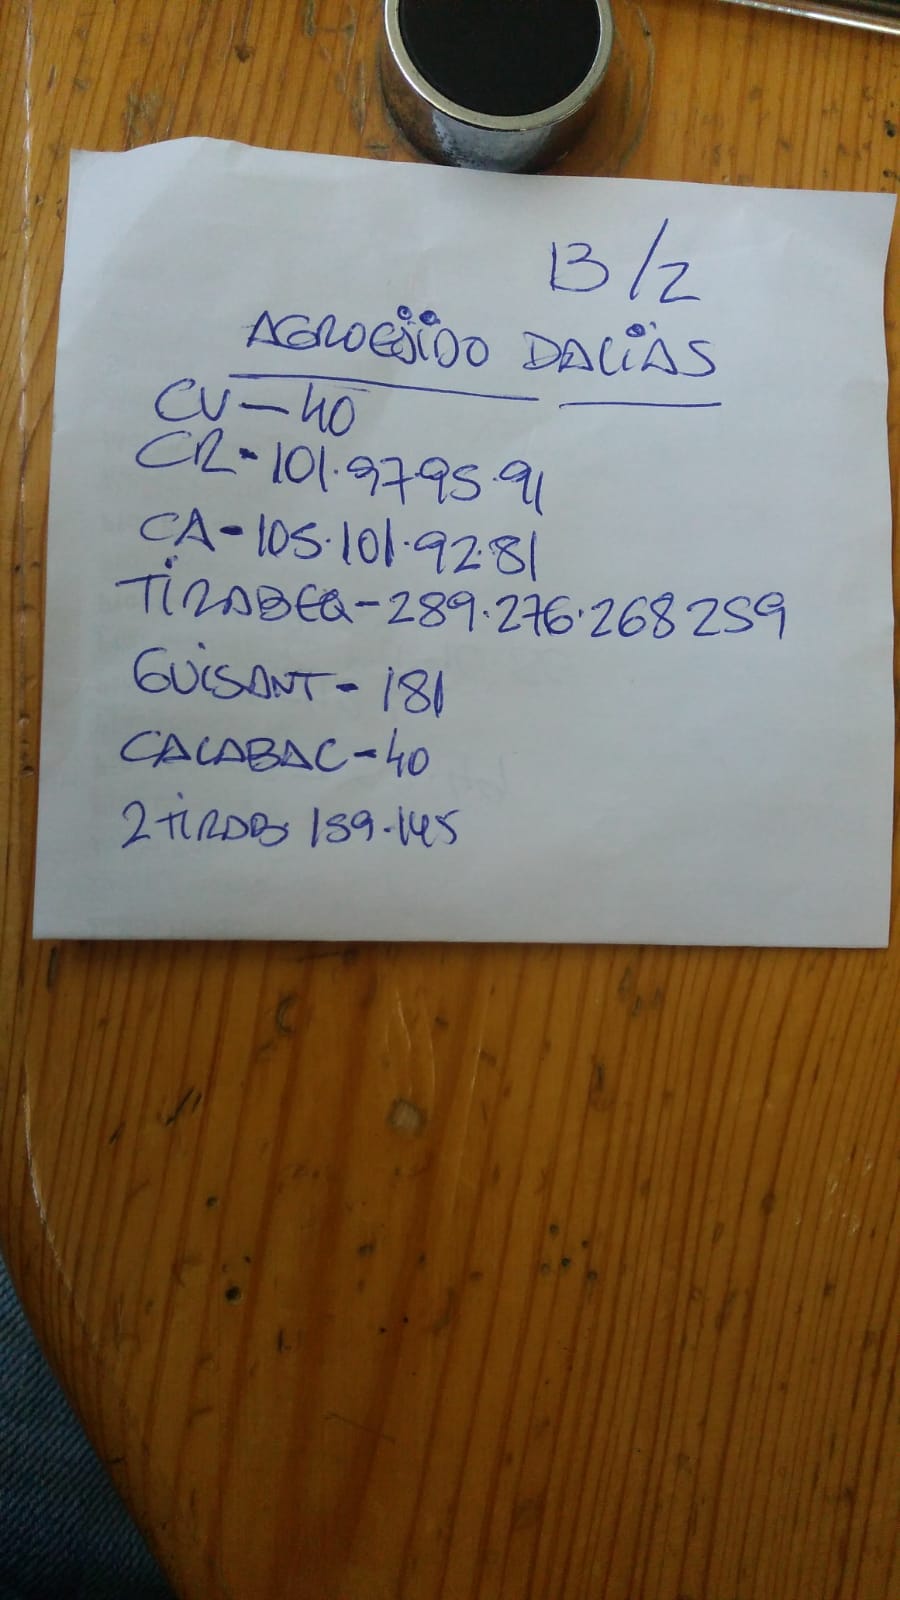 13/2
AGROEJIDO DALIAS
CV-40
CR-101.97.95.91
CA-105.101.92.81
TIRABEQ-289.276.268 259
GUISANT-181
CALABAC-40
2 TIRAB. 159.145